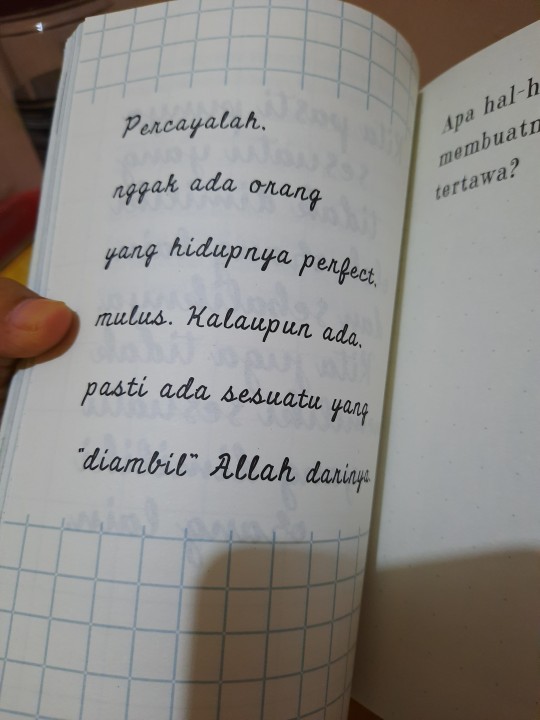 Percayalah,
nggak ada orang
yang hidupnya perfect,
mulus. Kalaupun ada,
pasti ada sesuatu yang
"diambil" Allah darinya.
Apa hal-h
membuatn
tertawa?